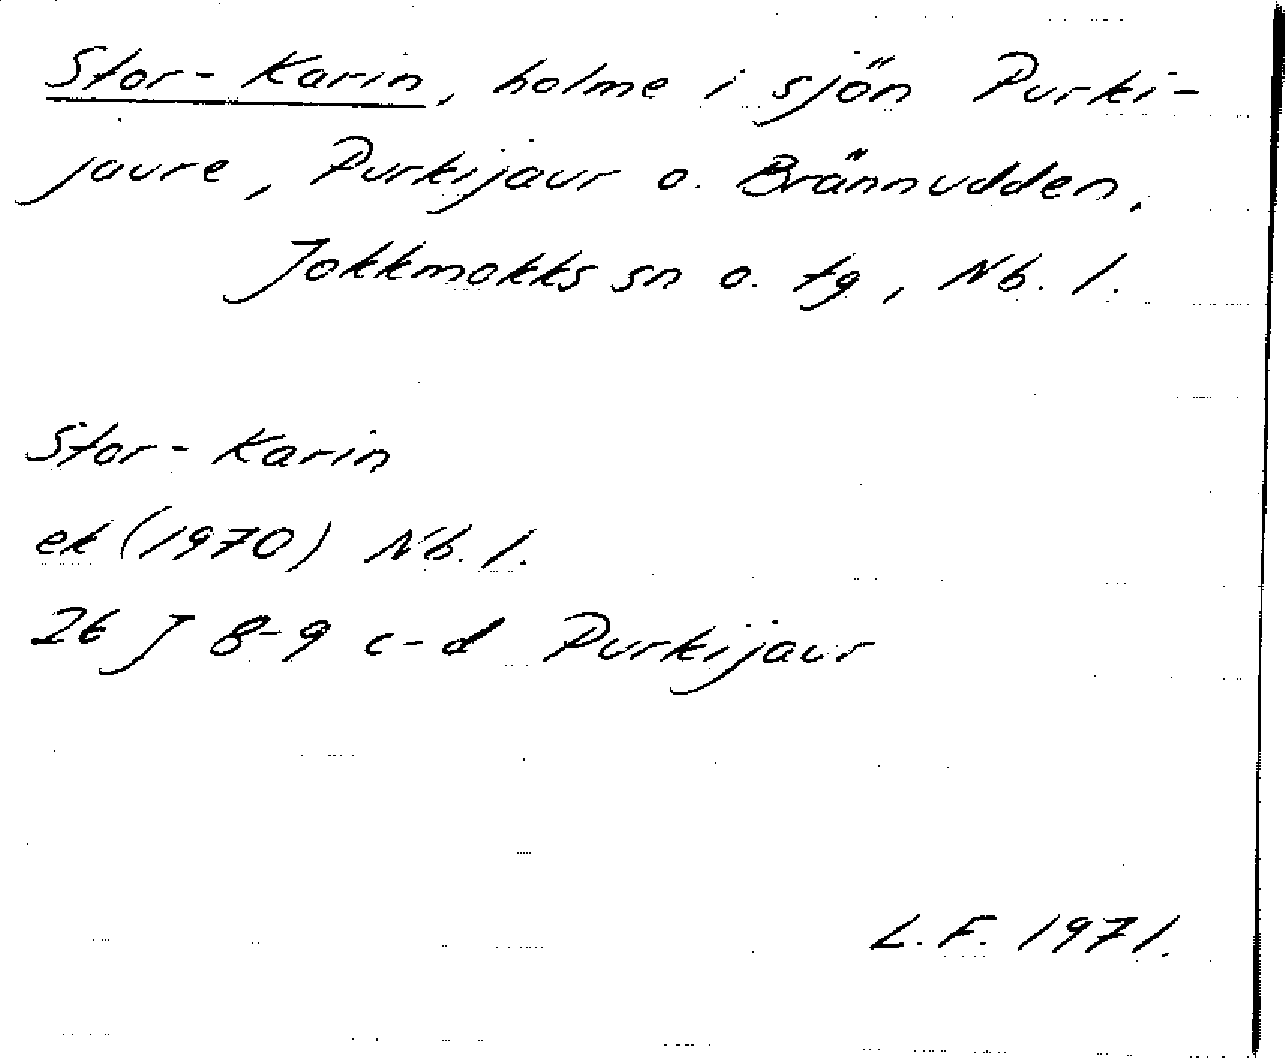 Stor-Karin, holme i sjön Purki-
jaure, Purkijaur o. Brännudden,
Jokkmokks sn o. tg, Nb. l.
Stor-Karin
ek (1970) Nb. l.
26 J 8-9 c-d Purkijaur
L. F. 1971.